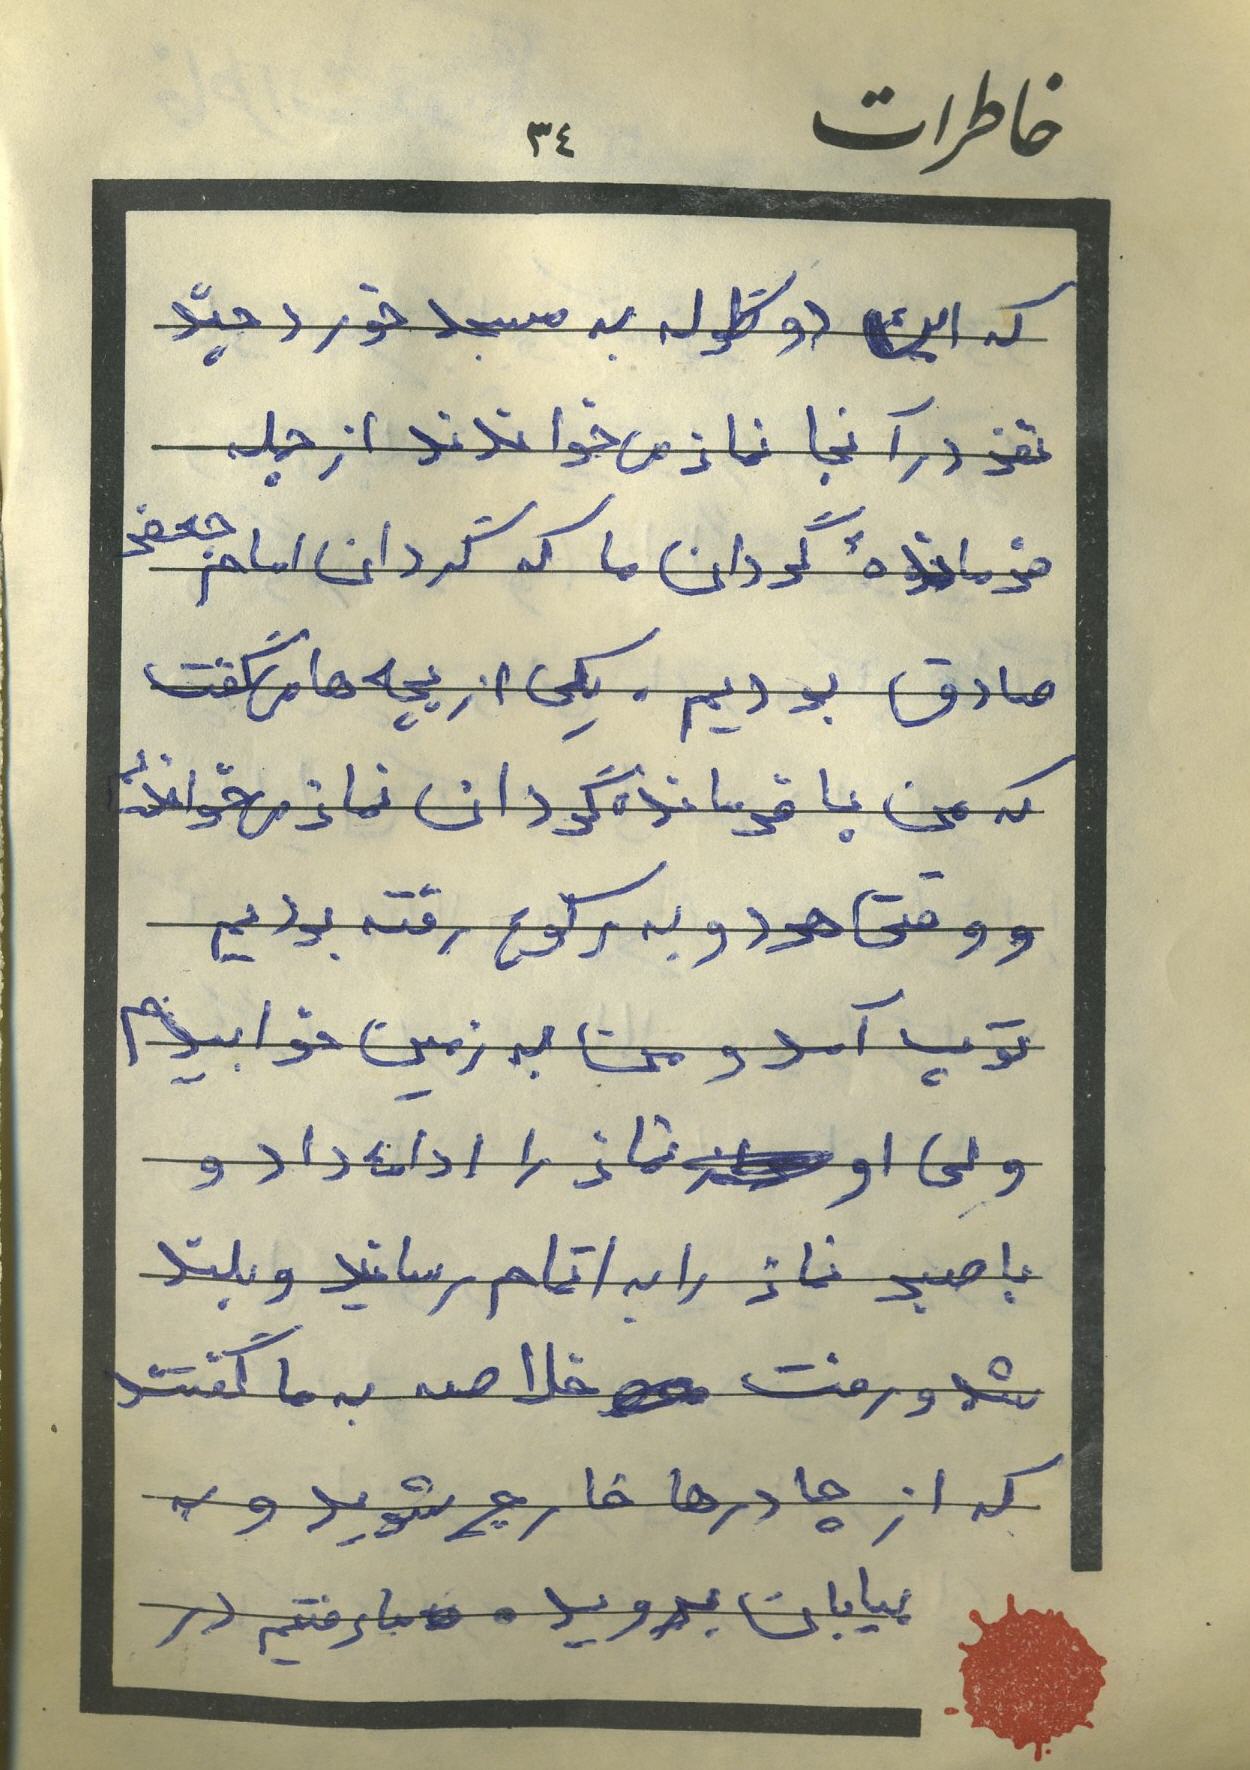 خاطرات
٣٤
که این دو گلوله به مسجد خورد چند
نفر در آنجا نماز می خواندند از جمله
فرماندهٔ گردان ما که گردان امام جعفر
صادق بودیم . یکی از بچه ها می گفت
که من با فرمانده گردان نماز می خواندیم
و وقتی هر دو به رکوع رفته بودیم
توپ آمد و من به زمین خوابیدم
ولی او نماز را ادامه داد و
با صبر نماز را به اتمام رساند و بلند
شد و رفت خلاصه به ما گفتند
که از چادرها خارج شوید و به
بیابان بروید . ما رفتیم در